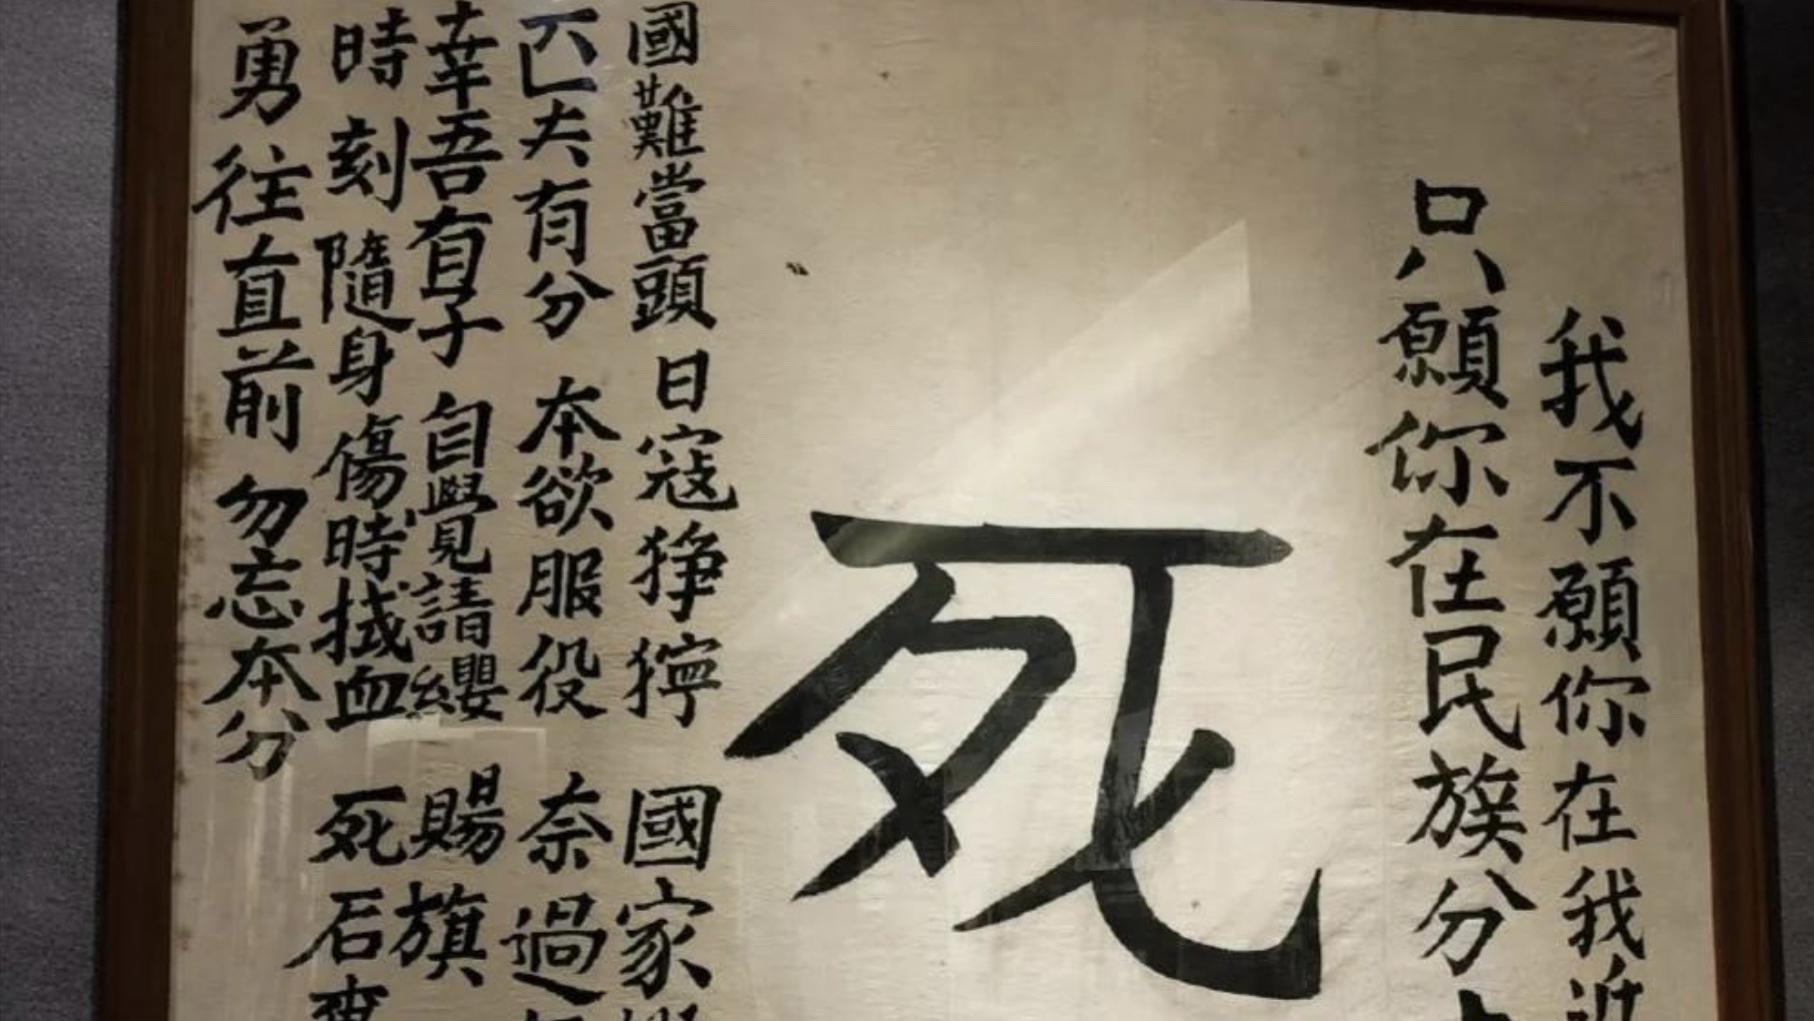 我不願你在我近
只願你在民族分
死
國難當頭 日寇猙獰 國家
匹夫有分 本欲服役 奈過
幸吾有子 自覺請纓 賜旗
時刻隨身 傷時拭血 死后裹
勇往直前 勿忘本分